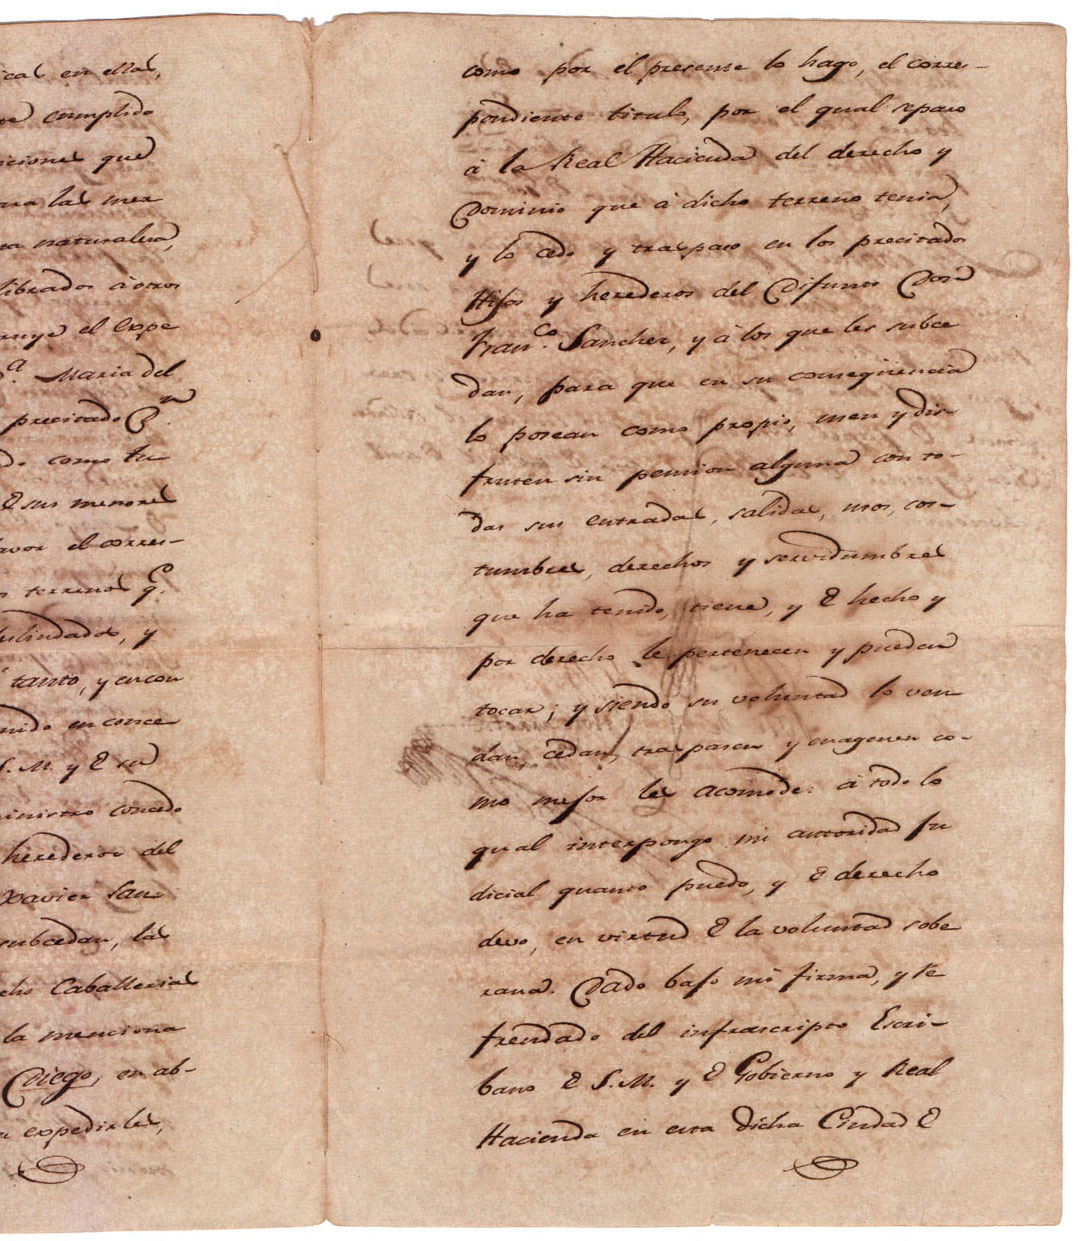 ical en ellas,
cumplido
iciones que
ara las mer
ta naturaleza,
librados à otros
ruye el Expe
ª. Maria del
precitado Dⁿ.
do como tu
d sus menores
avor el corres-
s terrenos q.ᵉ
deslindados, y
tanto, y en con
nido en conce
S. M. y d su
ministro concedo
herederos del
Xavier San
subcedan, las
cho Caballerias
la menciona
Diego, en ab-
a expedirles,
como por el presente lo hago, el corres-
pondiente titulo, por el qual separo
à la Real Hacienda del derecho y
Dominio que à dicho terreno tenia,
y lo cedo y traspaso en los precitados
Hijos y herederos del Difunto Don
Fran.ᶜᵒ Sanchez, y à los que les subce
dan, para que en su conseqüencia
lo posean como propio, usen y dis-
fruten sin pension alguna con to-
das sus entradas, salidas, usos, cos-
tumbres, derechos y servidumbres
que ha tenido, tiene, y d hecho y
por derecho le pertenecen y puedan
tocar; y siendo su voluntad lo ven
dan, cedan, traspasen y enagenen co-
mo mejor les acomode: à todo lo
qual interpongo mi autoridad ju
dicial quanto puedo, y d derecho
devo, en virtud d la voluntad sobe
rana. Dado bajo mi firma, y re
frendado del infrascripto Escri-
bano d S. M. y d Gobierno y Real
Hacienda en esta dicha Ciudad d